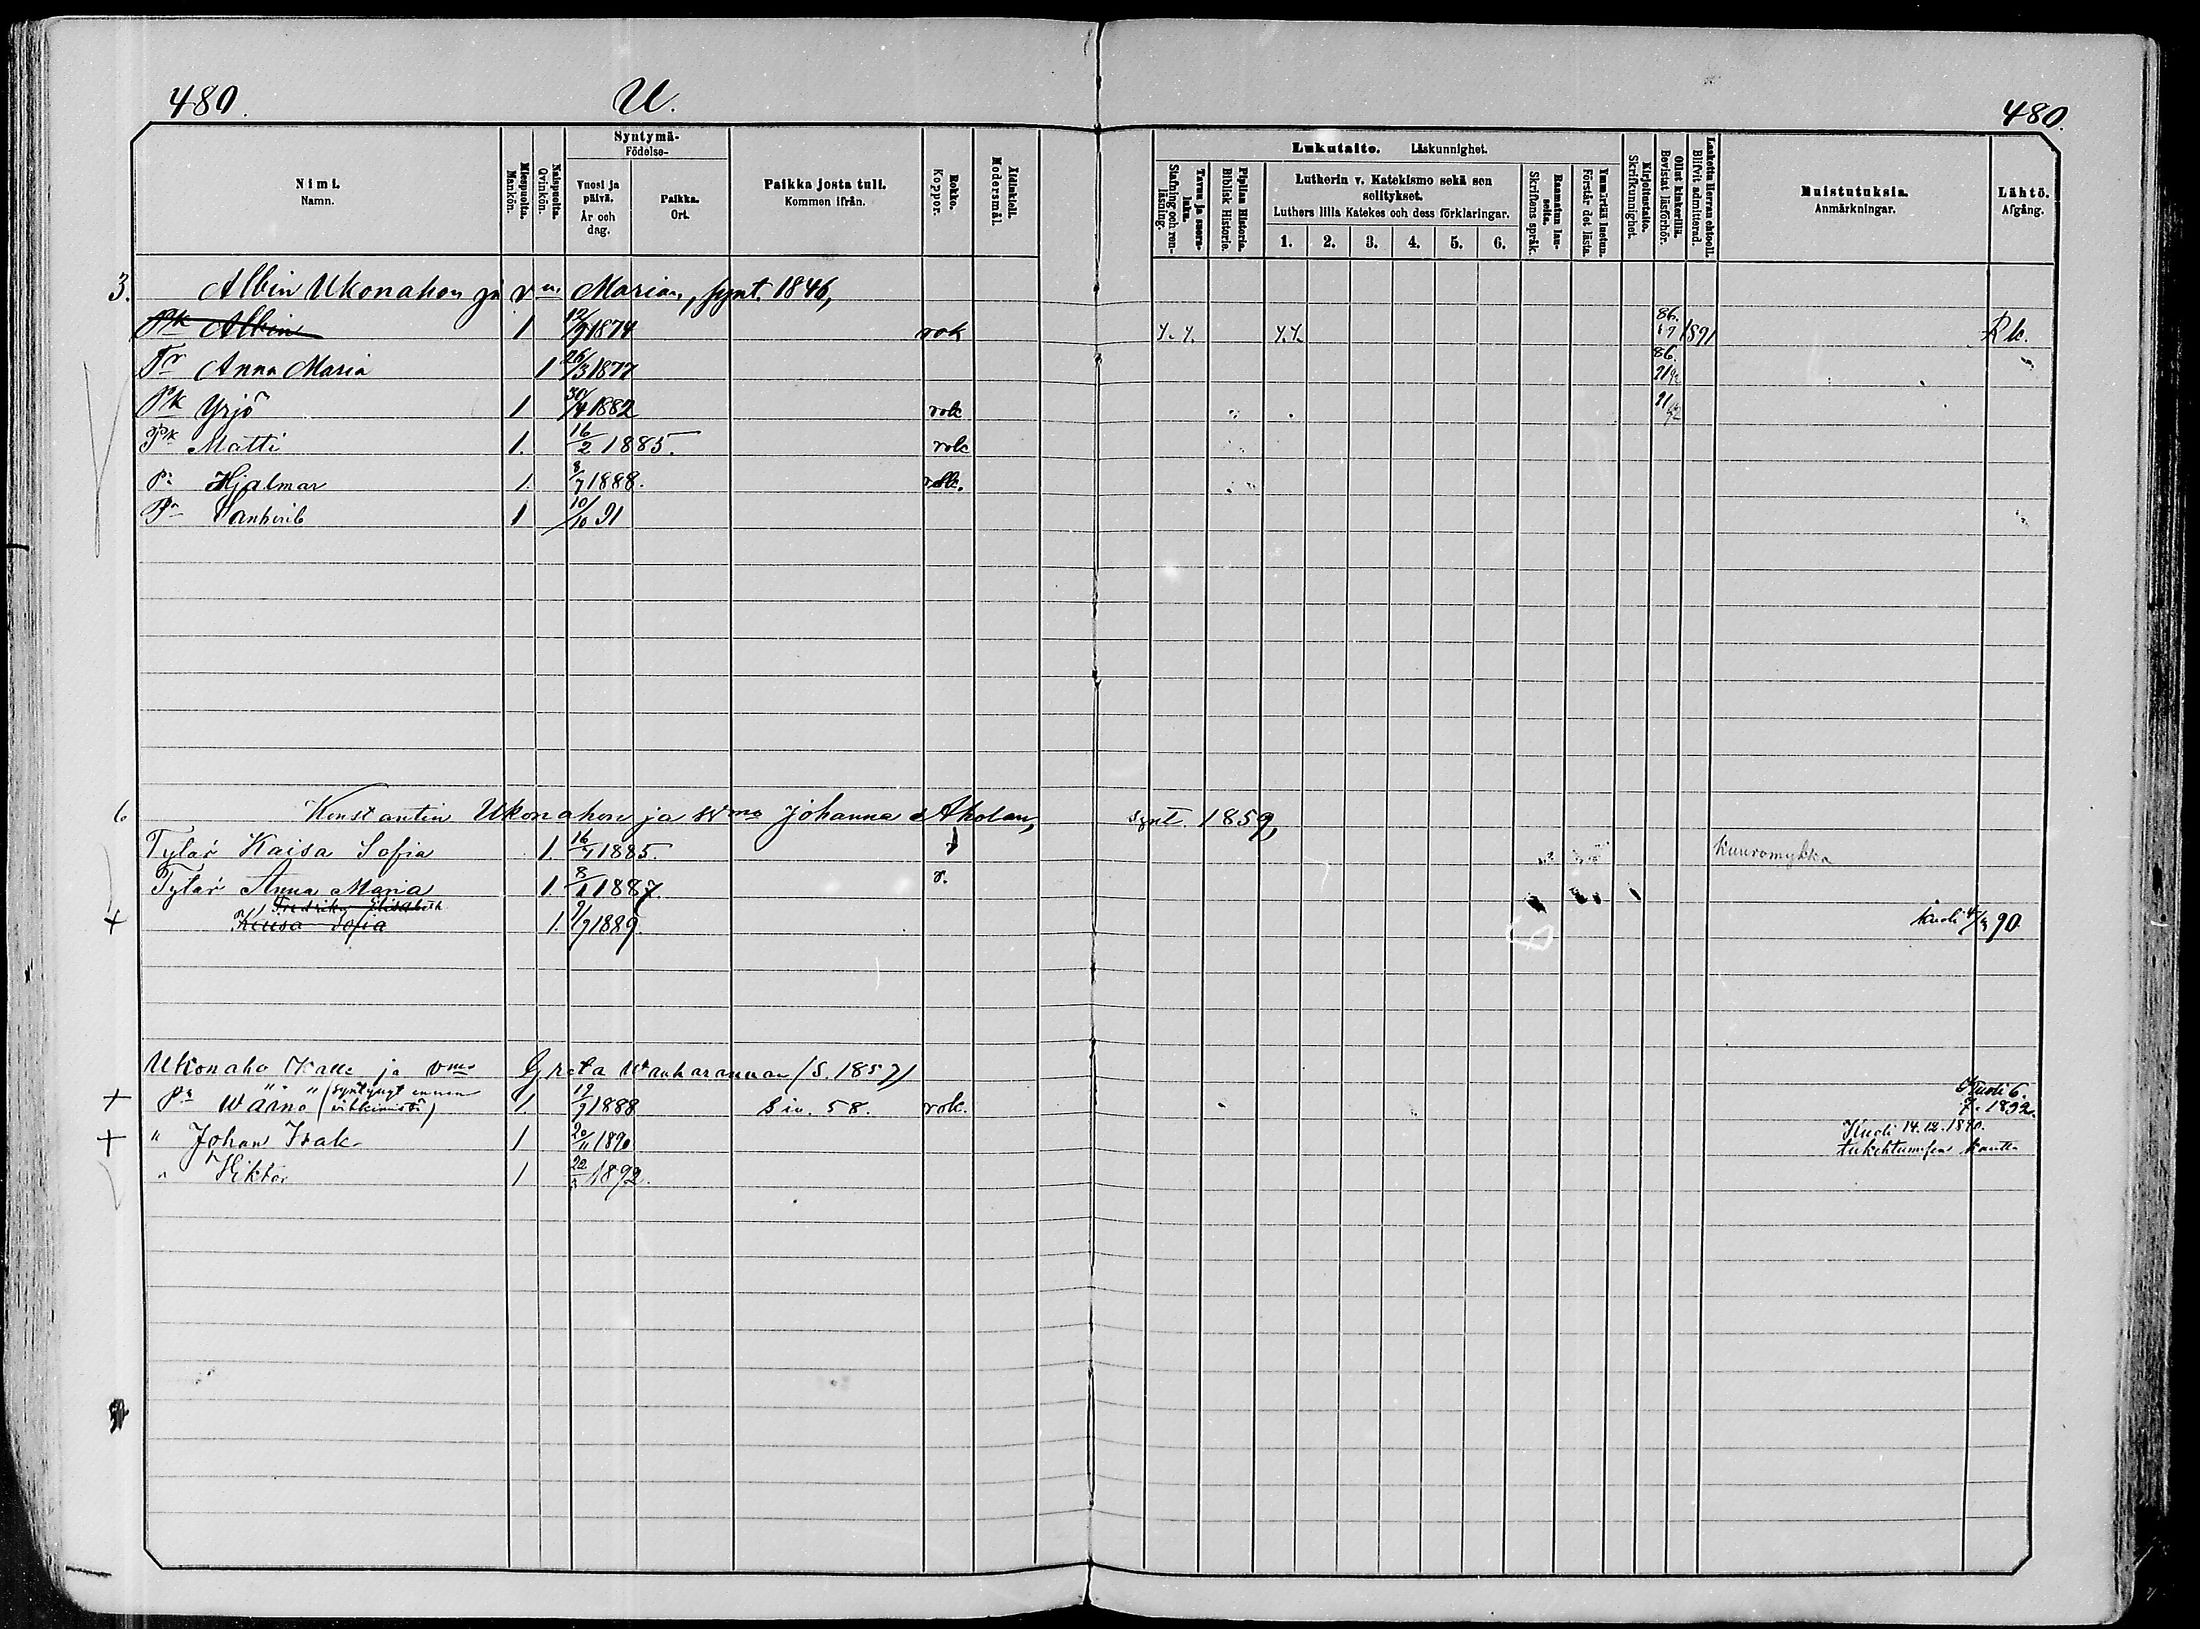 480.
U.
480.
Nimi.
Namn.
Miespuolta.
Mankön.
Naispuolta.
Qvinkön.
Syntymä-
Födelse-
Vuosi ja
päivä.
År och
dag.
Paikka.
Ort.
Paikka josta tuli.
Kommen ifrån.
Rokko.
Koppor.
Äitinkieli.
Modersmål.
Lukutaito. Läskunnighet.
Tavuu ja suora-
luku.
Stafning och ren-
läsning.
Piplian Historia.
Biblisk Historie.
Lutherin v. Katekismo sekä sen
selitykset.
Luthers lilla Katekes och dess förklaringar.
1. 2. 3. 4. 5. 6.
Raamatun lau-
seita.
Skriftens språk.
Ymmärtää luetun.
Förstår det lästa.
Kirjoitustaito.
Skrifkunnighet.
Ollut kinkerillä.
Bevistat läsförhör.
Laskettu Herran ehtoolI.
Blifvit admitterad.
Muistutuksia.
Anmärkningar.
Lähtö.
Afgång.
3. Albin Ukonahon ja vm Marian, synt. 1846,
Pk Albin 1 12/9 1874 rok 86. 87 1891 Rk.
Tr Anna Maria 1 26/3 1877 86. 91 92
Pk Yrjö 1 30/4 1882 rok 91 92
Pk Matti 1. 16/2 1885. rok
Pa Hjalmar 1 8/7 1888. rok.
Pa Sanherib 1 10/10 91
6 Konstantin Ukonahon ja wmo Johanna Aholan, synt. 1859,
Tytär Kaisa Sofia 1. 16/7 1885. kuuromykkä
Tytär Anna Maria 1. 8/1 1887. r.
Fredrika Elisabeth
+ Kaisa Sofia 1. 9/9 1889 kuoli 4/3 90
Ukonaho Kalle ja vmo Greta Wanharannan (S. 1857)
+ Pa Wäinö (syntynyt ennen vihkimistä) 1 19/7 1888 Siv. 58. rok. Kuoli 6.
7. 1892.
+ " Johan Isak 1 20/11 1890 Kuoli 14.12.1890.
tukehtumisen kautta
" Viktor 1 22 1892.